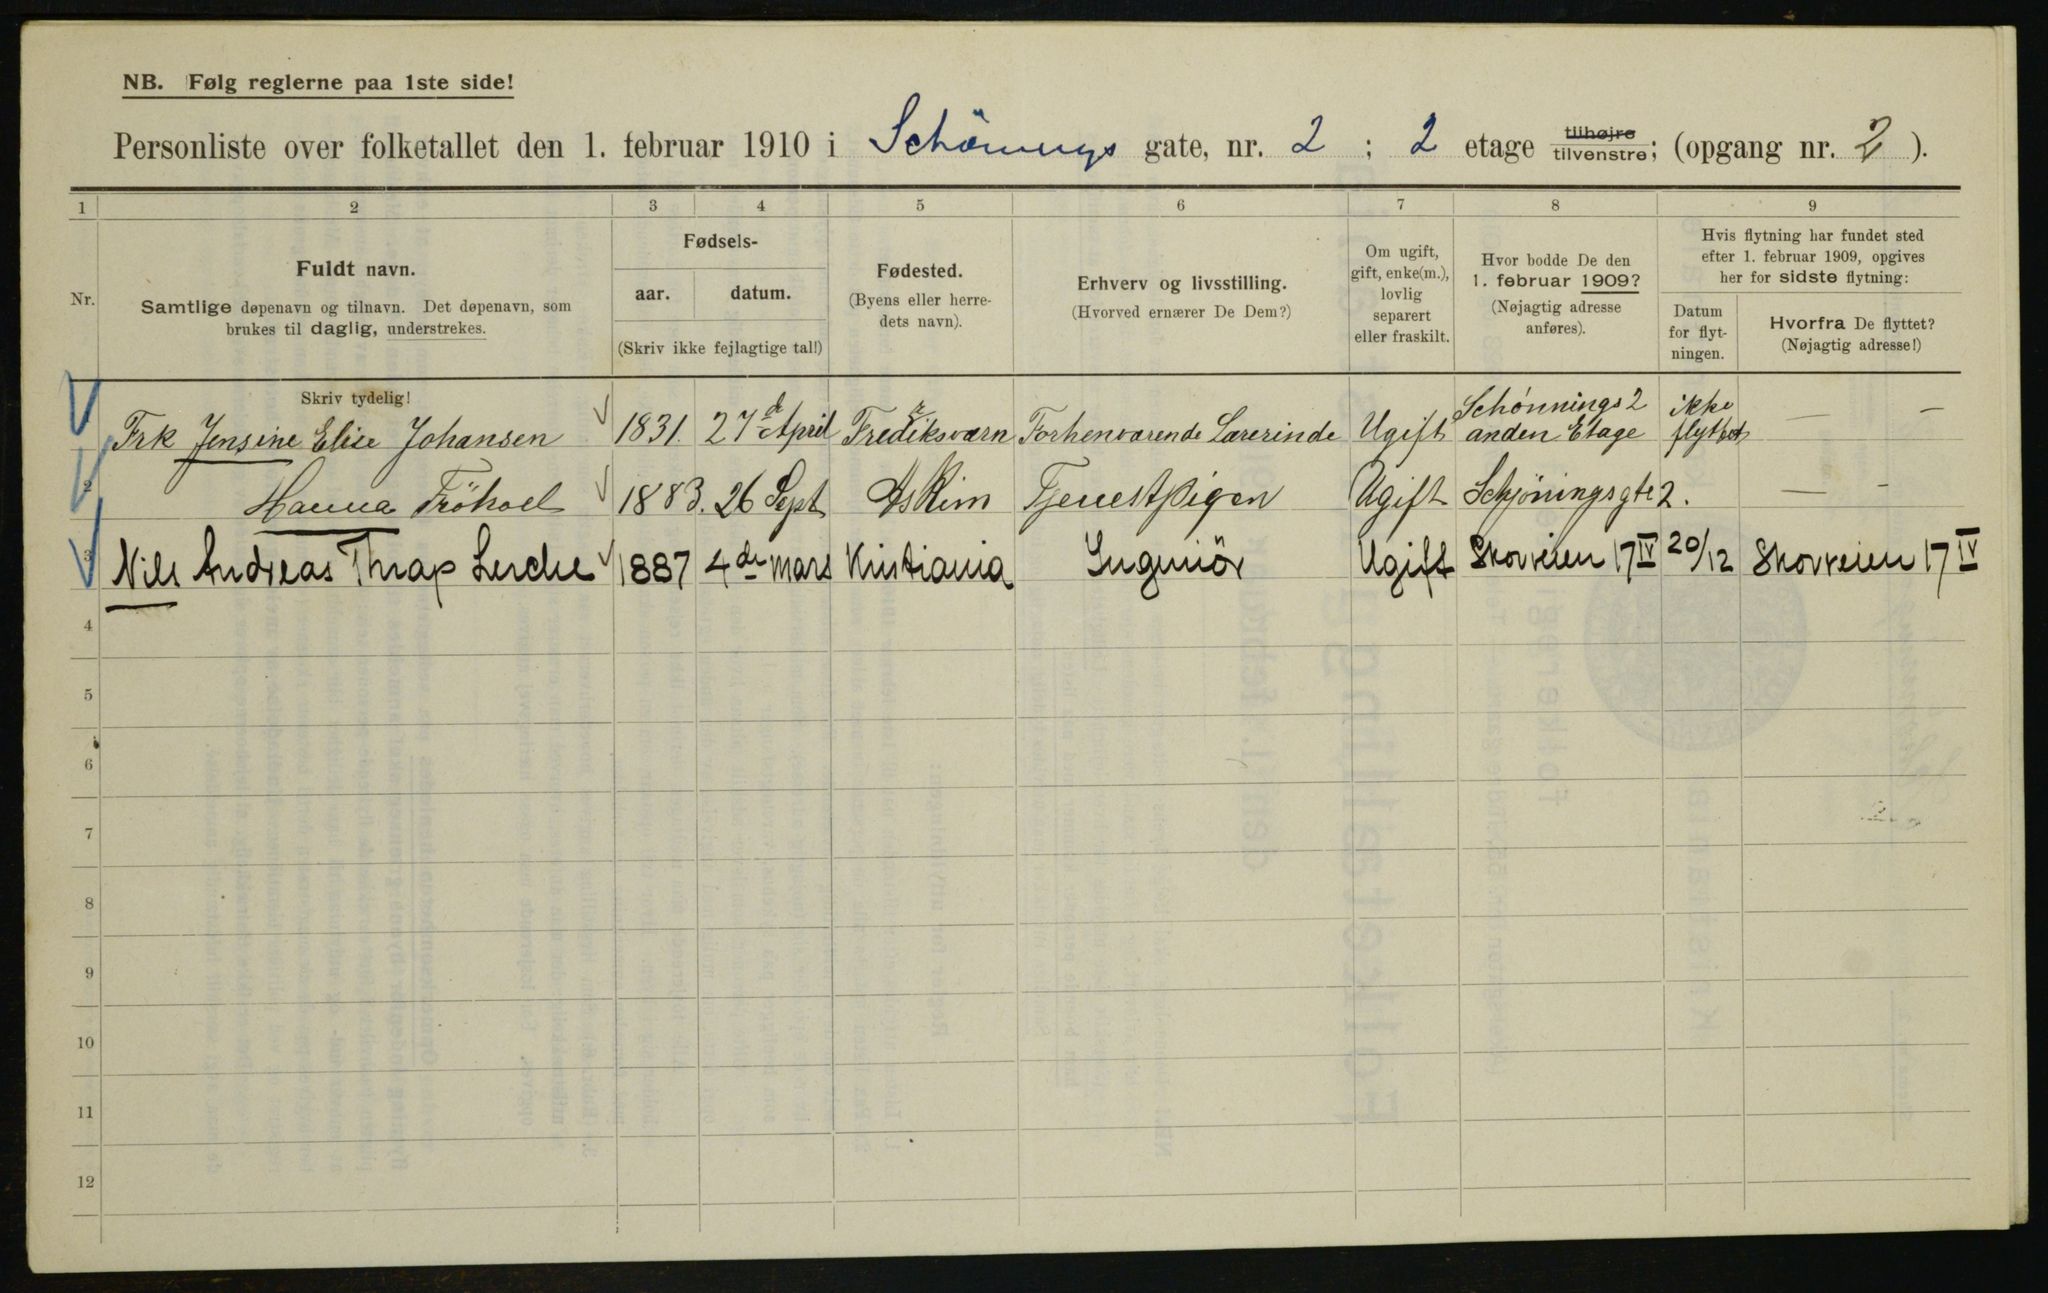 NB. Følg reglerne paa 1ste side!
Personliste over folketallet den 1. februar 1910 i Schönings gate, nr. 2 ; 2 etage tilhøjre tilvenstre; (opgang nr. 2 ).
1 2 3 4 5 6 7 8 9
Nr.
Fuldt navn.
Samtlige døpenavn og tilnavn. Det døpenavn, som
brukes til daglig, understrekes.
Fødsels-
aar. datum.
(Skriv ikke fejlagtige tal!)
Fødested.
(Byens eller herre-
dets navn).
Erhverv og livsstilling.
(Hvorved ernærer De Dem?)
Om ugift,
gift, enke(m.),
lovlig
separert
eller fraskilt.
Hvor bodde De den
1. februar 1909?
(Nøjagtig adresse
anføres).
Hvis flytning har fundet sted
efter 1. februar 1909, opgives
her for sidste flytning:
Datum
for flyt-
ningen.
Hvorfra De flyttet?
(Nøjagtig adresse!)
Skriv tydelig!
Frk Jensine Elise Johansen 1831. 27de April Frediksværn Forhenværende Lærerinde Ugift Schønnings 2 anden Etage ikke flyttet — —
2 Hanna Fröhoel 1883. 26 Sept Askim Tjenestpigen Ugift Schjöningsgte 2. — -
3 Nils Andreas Thrap Lerche 1887 4de mars Kristiania Ingeniör Ugift Skovveien 17 IV 20/12 Skovveien 17 IV
4
5
6
7
8
9
10
11
12